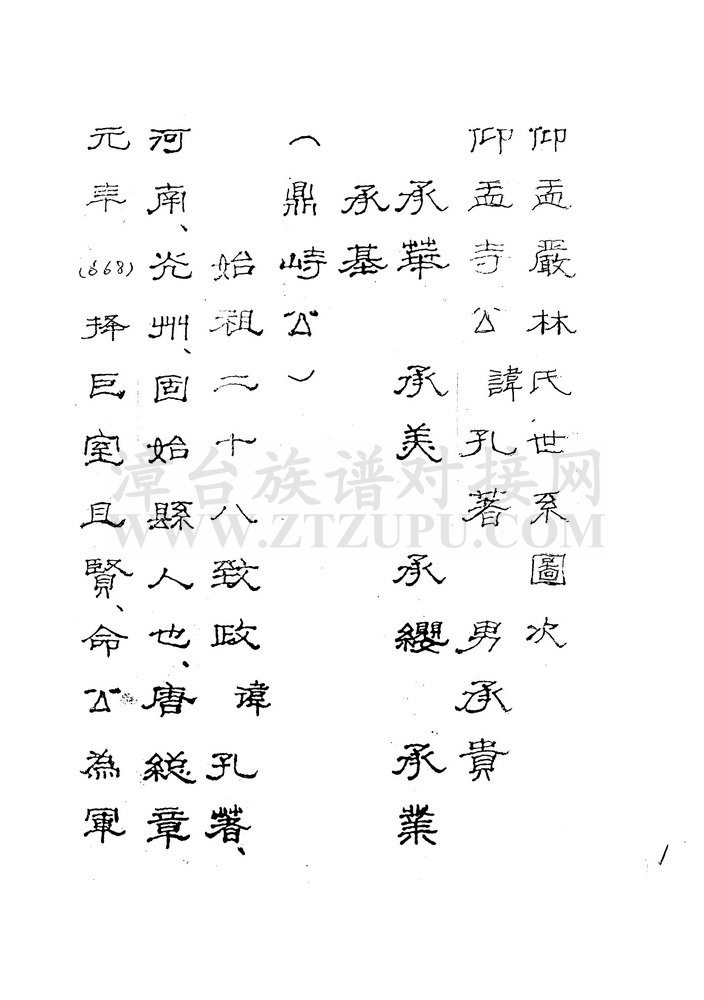 仰盂嚴林氏世系圖次
仰盂寺公 諱孔著 男承貴
承華 承美 承纓 承業
承基
（鼎峙公）
始祖二十八致政 諱孔著、
河南、光州、固始縣人也、唐總章
元年(668)择巨室且賢、命公為軍
漳台族谱对接网
WWW.ZTZUPU.COM
1